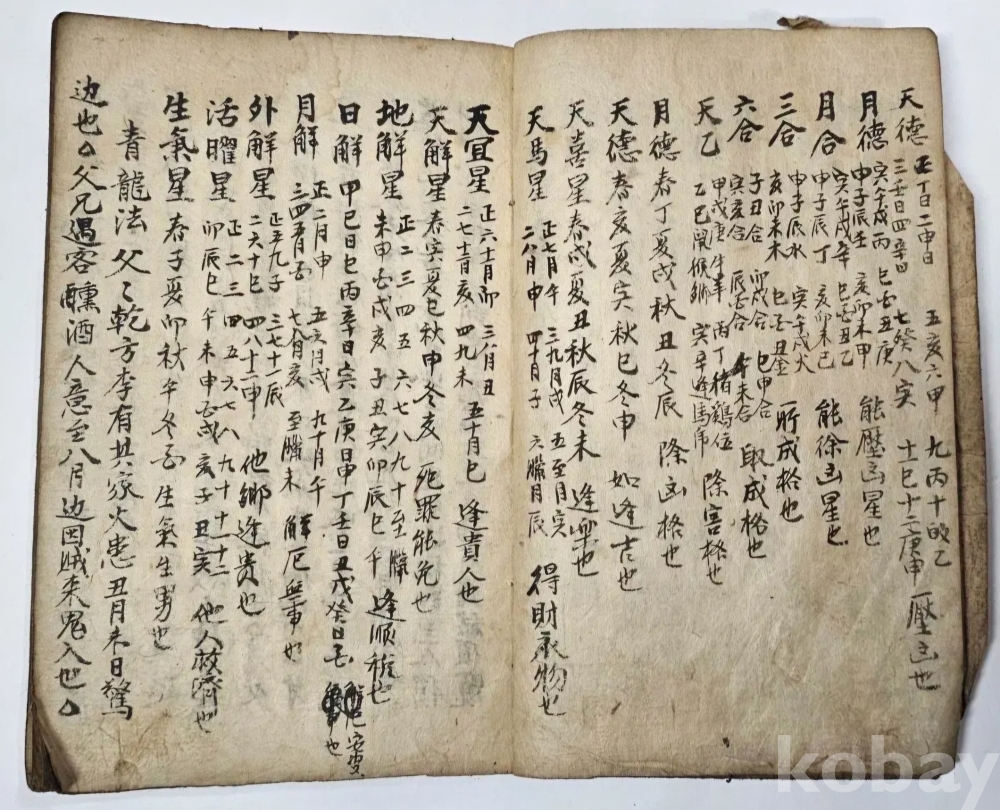 天德 正丁日二申日 三壬日四辛日 五亥六甲 七癸八寅 九丙十 乙 十巳十二庚申 壓凶也
月德 寅午戌丙 申子辰壬 巳酉丑庚 亥卯未甲 能壓凶星也
月合 寅午戌辛 申子辰丁 巳酉丑乙 亥卯未己 能徐凶星也
三合 申子辰水 亥卯未木 寅午戌火 巳酉丑金 所成格也
六合 子丑合 寅亥合 卯戌合 辰酉合 巳申合 午未合 取成格也
天乙 甲戊庚牛羊 乙己鼠猴鄉 丙丁猪鷄位 六辛逢馬虎 除害格也
月德 春丁夏戌秋丑冬辰 除凶格也
天德 春亥夏寅秋巳冬申 如逢吉也
天喜星 春戌夏丑秋辰冬未 逢樂也
天馬星 正七月午 二八月申 三九月戌 四十月子 五至月寅 六臘月辰 得財 物也
天宜星 正六十月卯 二七十一月亥 三八月丑 四九未 五十月巳 逢貴人也
天解星 春寅夏巳秋申冬亥 死罪能免也
地解星 正二三四五六七八九十至臘 未申酉戌亥子丑寅卯辰巳午 逢順 也
日解 甲己日巳丙辛日寅乙庚日申丁壬日丑戊癸日酉 也
月解 正二月申 三四五月酉 五六月戌 七八月亥 九十月午 至臘未 解厄無事也
外解星 正五九子 二六十巳 三七十一辰 四八十二申 他鄉逢貴也
活曜星 正二三四五六七八九十十一十二 卯辰巳午未申酉戌亥子丑寅 他人救濟也
生氣星 春子夏卯秋午冬酉 生氣生男也
青龍法 父〻乾方李有其家火患丑月未日驚
边也△父兄遇客醺酒人意至八月边因賊来鬼入也△
kobay